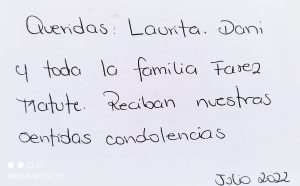 Queridas: Laurita. Dani
y toda la familia Farez
Matute. Reciban nuestras
sentidas condolencias
Julio 2022